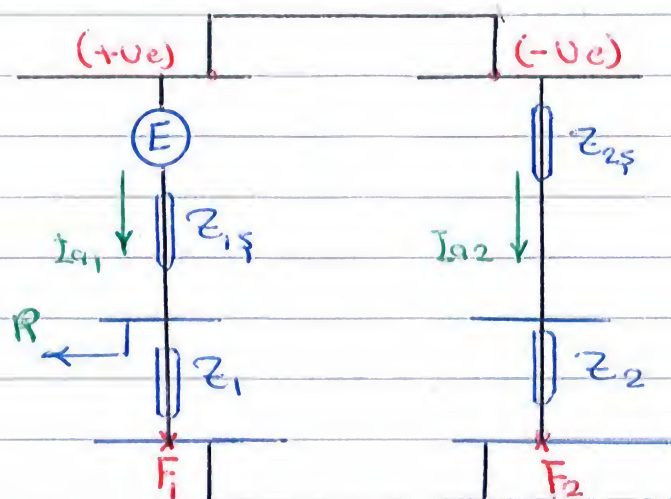 (+Ve) (-Ve)
E Z2s
Ia1 Z1s Ia2
R
Z1 Z2
F1 F2